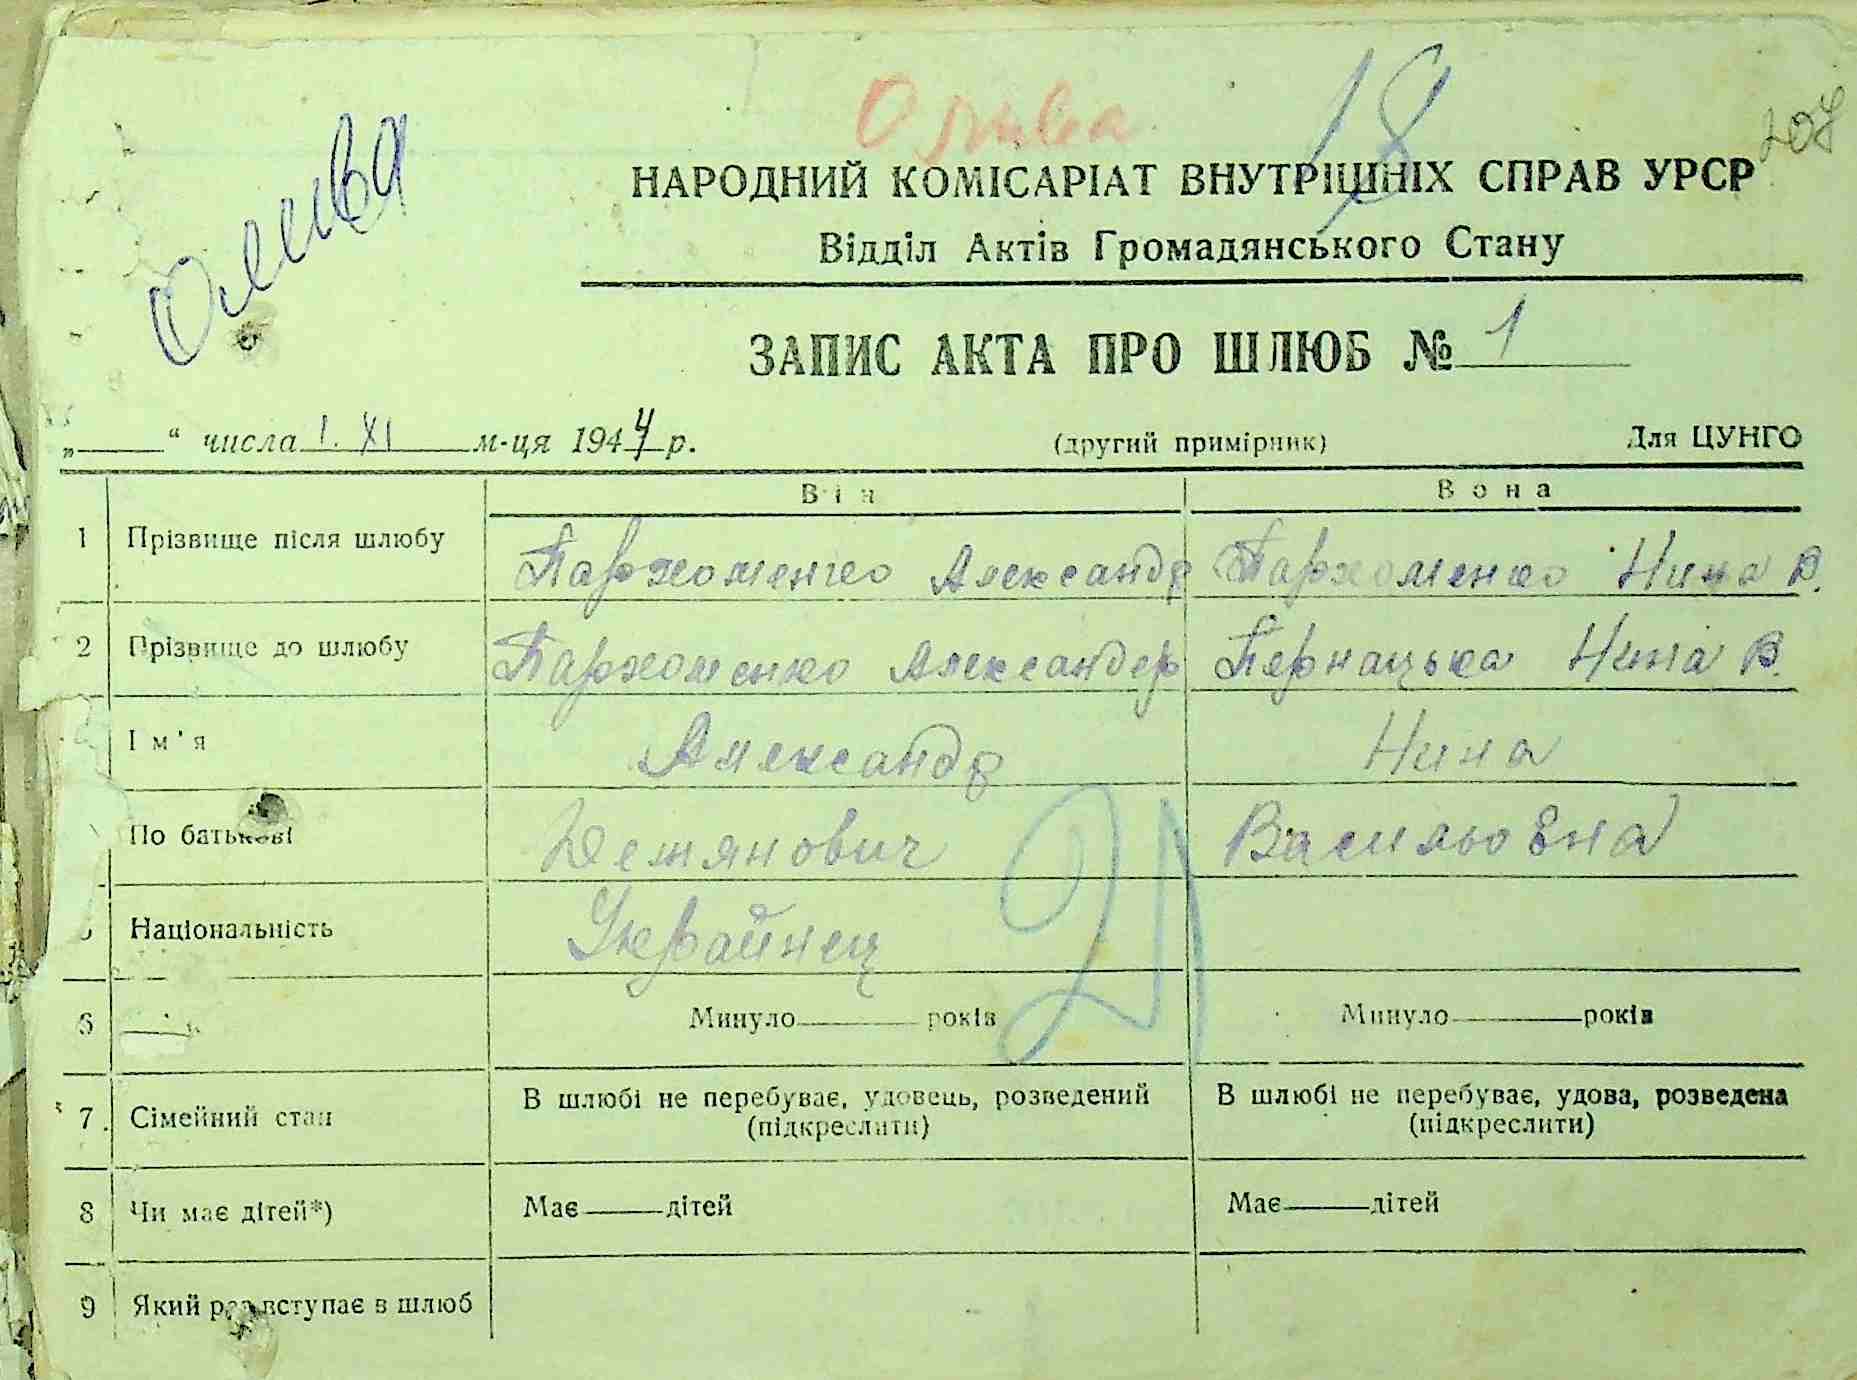 Олива
18
207
Олива
НАРОДНИЙ КОМІСАРІАТ ВНУТРІШНІХ СПРАВ УРСР
Відділ Актів Громадянського Стану
ЗАПИС АКТА ПРО ШЛЮБ № 1
„ “ числа 1. XI м-ця 1944 р. (другий примірник) Для ЦУНГО
Він Вона
1 Прізвище після шлюбу Пархоменко Александр Пархоменко Нина В.
2 Прізвище до шлюбу Пархоменко Александер Пернацька Нина В.
Ім'я Александр Нина
По батькові Демянович Васильовна
Національність Украйнец
21
6 Минуло років Минуло років
7. Сімейний стан В шлюбі не перебуває, удовець, розведений В шлюбі не перебуває, удова, розведена
(підкреслити) (підкреслити)
8 Чи має дітей*) Має дітей Має дітей
9 Який раз вступає в шлюб